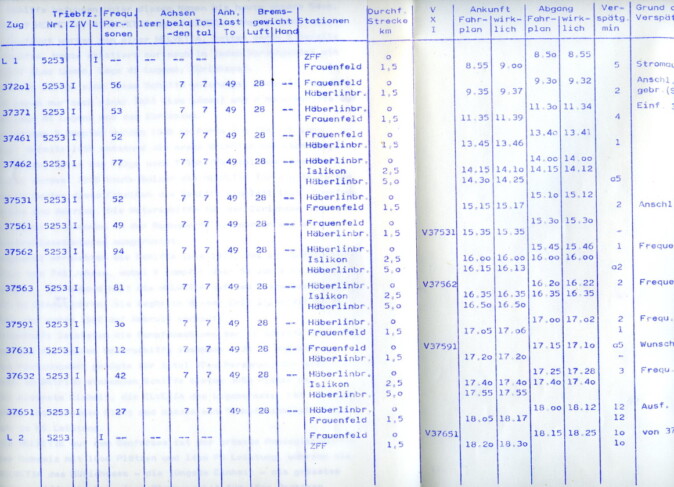 Zug Triebfz. Frequ. Achsen Anh. Brems- Stationen Durchf. V Ankunft Abgang Ver- Grund d
Nr. Z V L Per- leer bela To- last gewicht Strecke X Fahr- wirk- Fahr- wirk- spätg. Verspät
sonen -den tal To Luft Hand km I plan lich plan lich min
L 1 5253 I -- -- -- -- ZFF o 8.5o 8.55
Frauenfeld 1,5 8.55 9.oo 5 Stromau
372o1 5253 I 56 7 7 49 28 -- Frauenfeld o 9.3o 9.32 Anschl.
Häberlinbr. 1,5 9.35 9.37 2 gebr.(S
37371 5253 I 53 7 7 49 28 -- Häberlinbr. o 11.3o 11.34 Einf.
Frauenfeld 1,5 11.35 11.39 4
37461 5253 I 52 7 7 49 28 -- Frauenfeld o 13.4o 13.41
Häberlinbr. 1,5 13.45 13.46 1
37462 5253 I 77 7 7 49 28 -- Häberlinbr. o 14.oo 14.oo
Islikon 2,5 14.15 14.1o 14.15 14.12
Häberlinbr. 5,o 14.3o 14.25 o5
37531 5253 I 52 7 7 49 28 -- Häberlinbr. o 15.1o 15.12
Frauenfeld 1,5 15.15 15.17 2 Anschl
37561 5253 I 49 7 7 49 28 -- Frauenfeld o 15.3o 15.3o
Häberlinbr. 1,5 V37531 15.35 15.35 -
37562 5253 I 94 7 7 49 28 -- Häberlinbr. o 15.45 15.46 1 Freque
Islikon 2,5 16.oo 16.oo 16.oo 16.oo
Häberlinbr. 5,o 16.15 16.13 o2
37563 5253 I 81 7 7 49 28 -- Häberlinbr. o V37562 16.2o 16.22 2 Freque
Islikon 2,5 16.35 16.35 16.35 16.35
Häberlinbr. 5,o 16.5o 16.5o
37591 5253 I 3o 7 7 49 28 -- Häberlinbr. o 17.oo 17.o2 2 Frequ.
Frauenfeld 1,5 17.o5 17.o6 1
37631 5253 I 12 7 7 49 28 -- Frauenfeld o V37591 17.15 17.1o o5 Wunsch
Häberlinbr. 1,5 17.2o 17.2o -
37632 5253 I 42 7 7 49 28 -- Häberlinbr. o 17.25 17.28 3 Frequ.
Islikon 2,5 17.4o 17.4o 17.4o 17.4o
Häberlinbr. 5,o 17.55 17.55
37651 5253 I 27 7 7 49 28 -- Häberlinbr. o 18.oo 18.12 12 Ausf.
Frauenfeld 1,5 18.o5 18.17 12
L 2 5253 I -- -- -- -- Frauenfeld o V37651 18.15 18.25 1o von 37
ZFF 1,5 18.2o 18.3o 1o